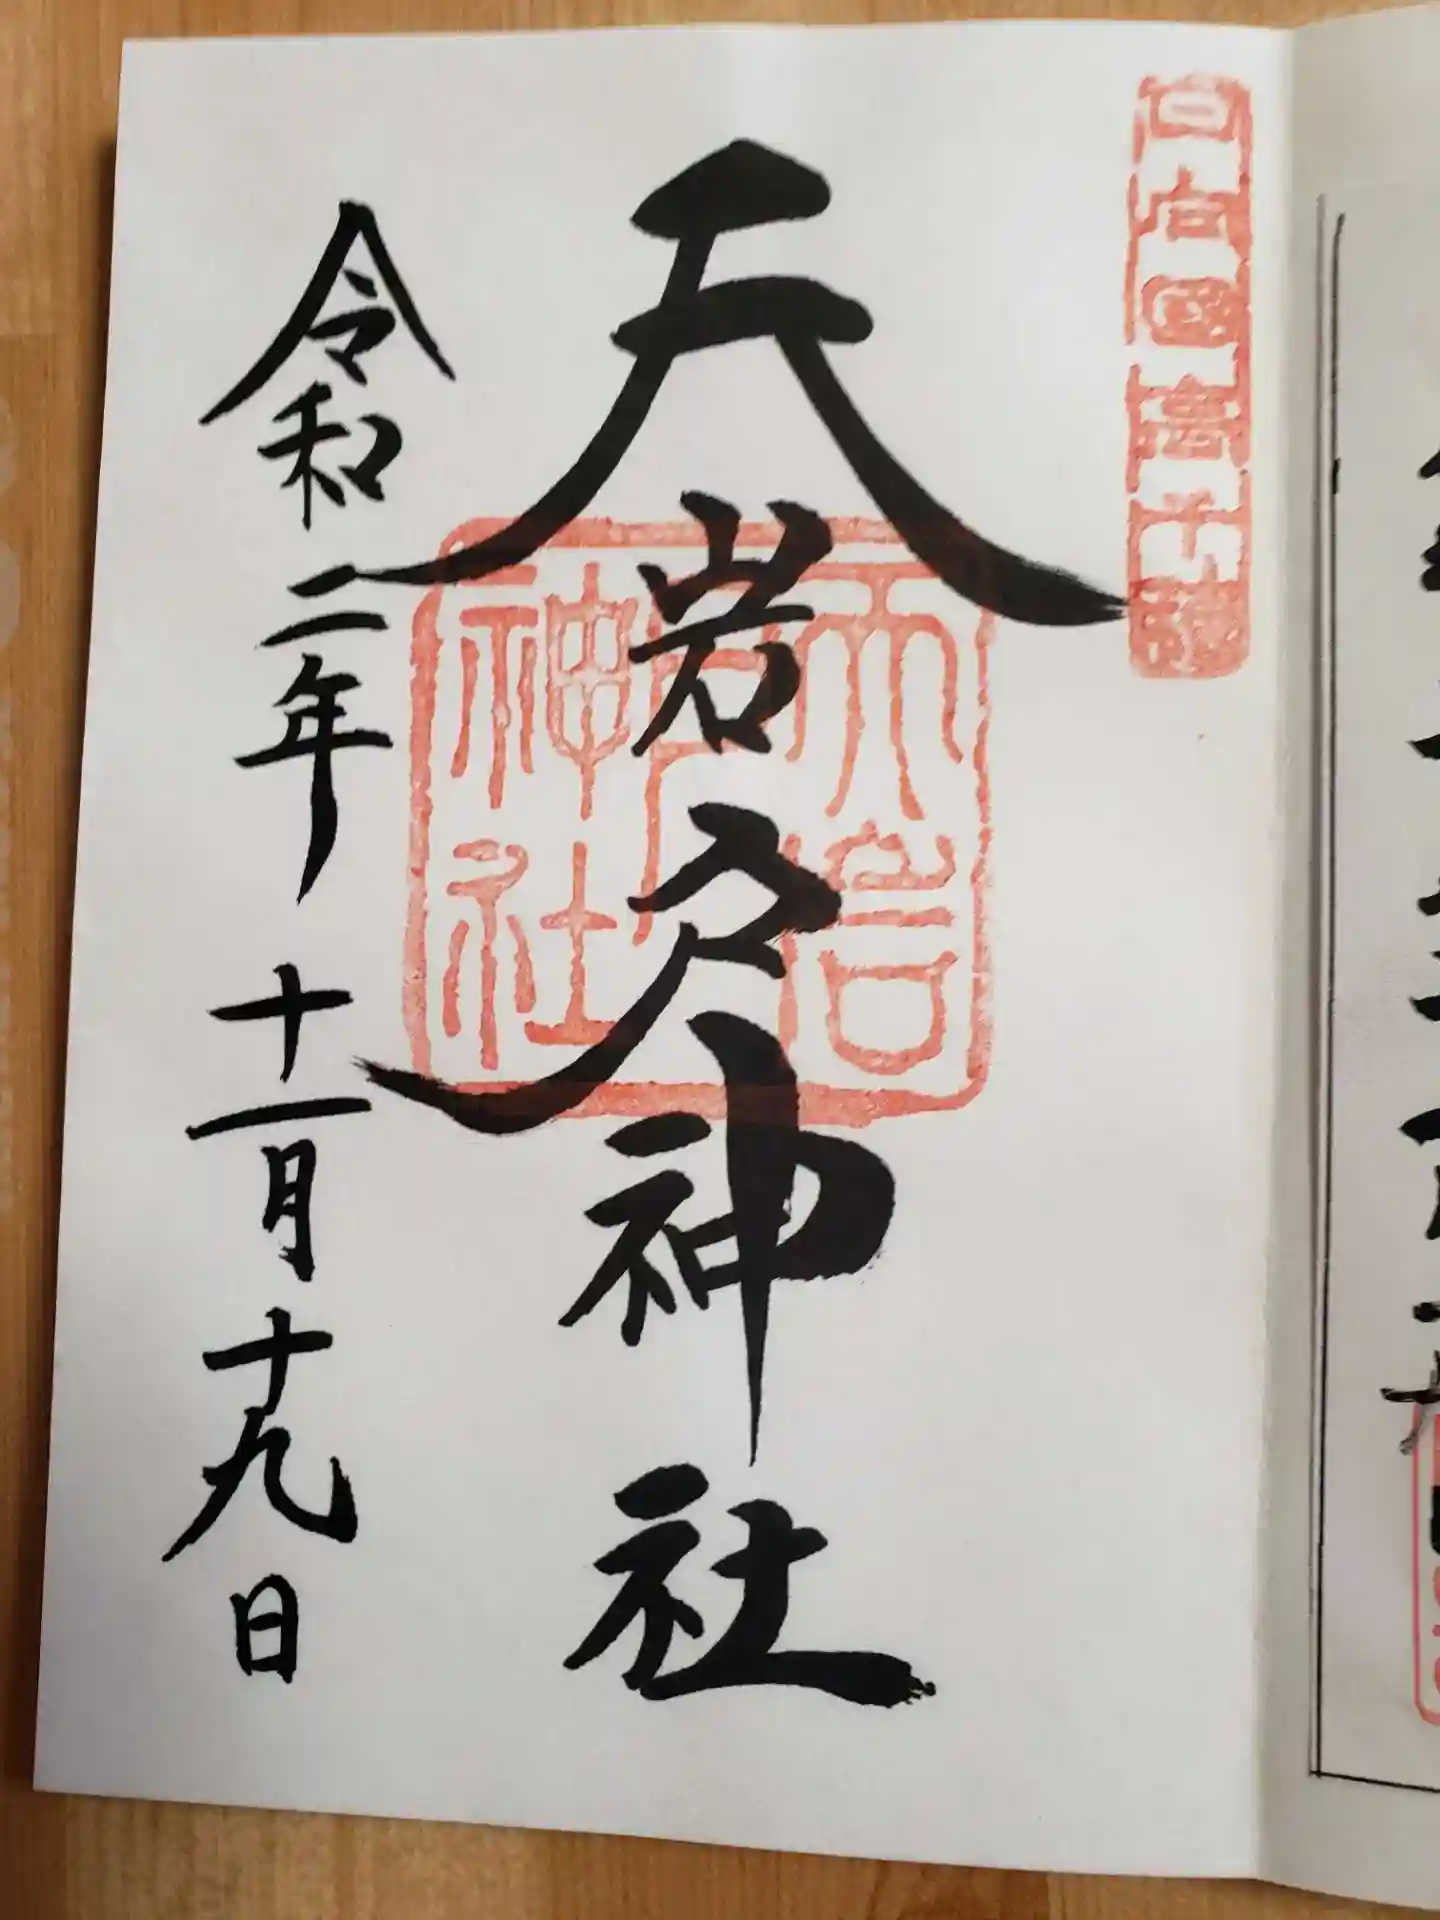 日向國高千穂
天岩戸神社
天岩戸神社
令和二年十一月十九日